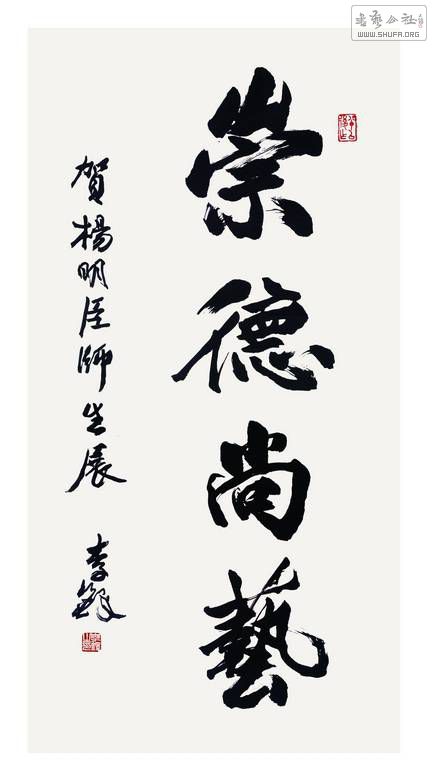 崇德尚藝
賀楊明臣師生展
李鐸
書藝公社
WWW.SHUFA.ORG